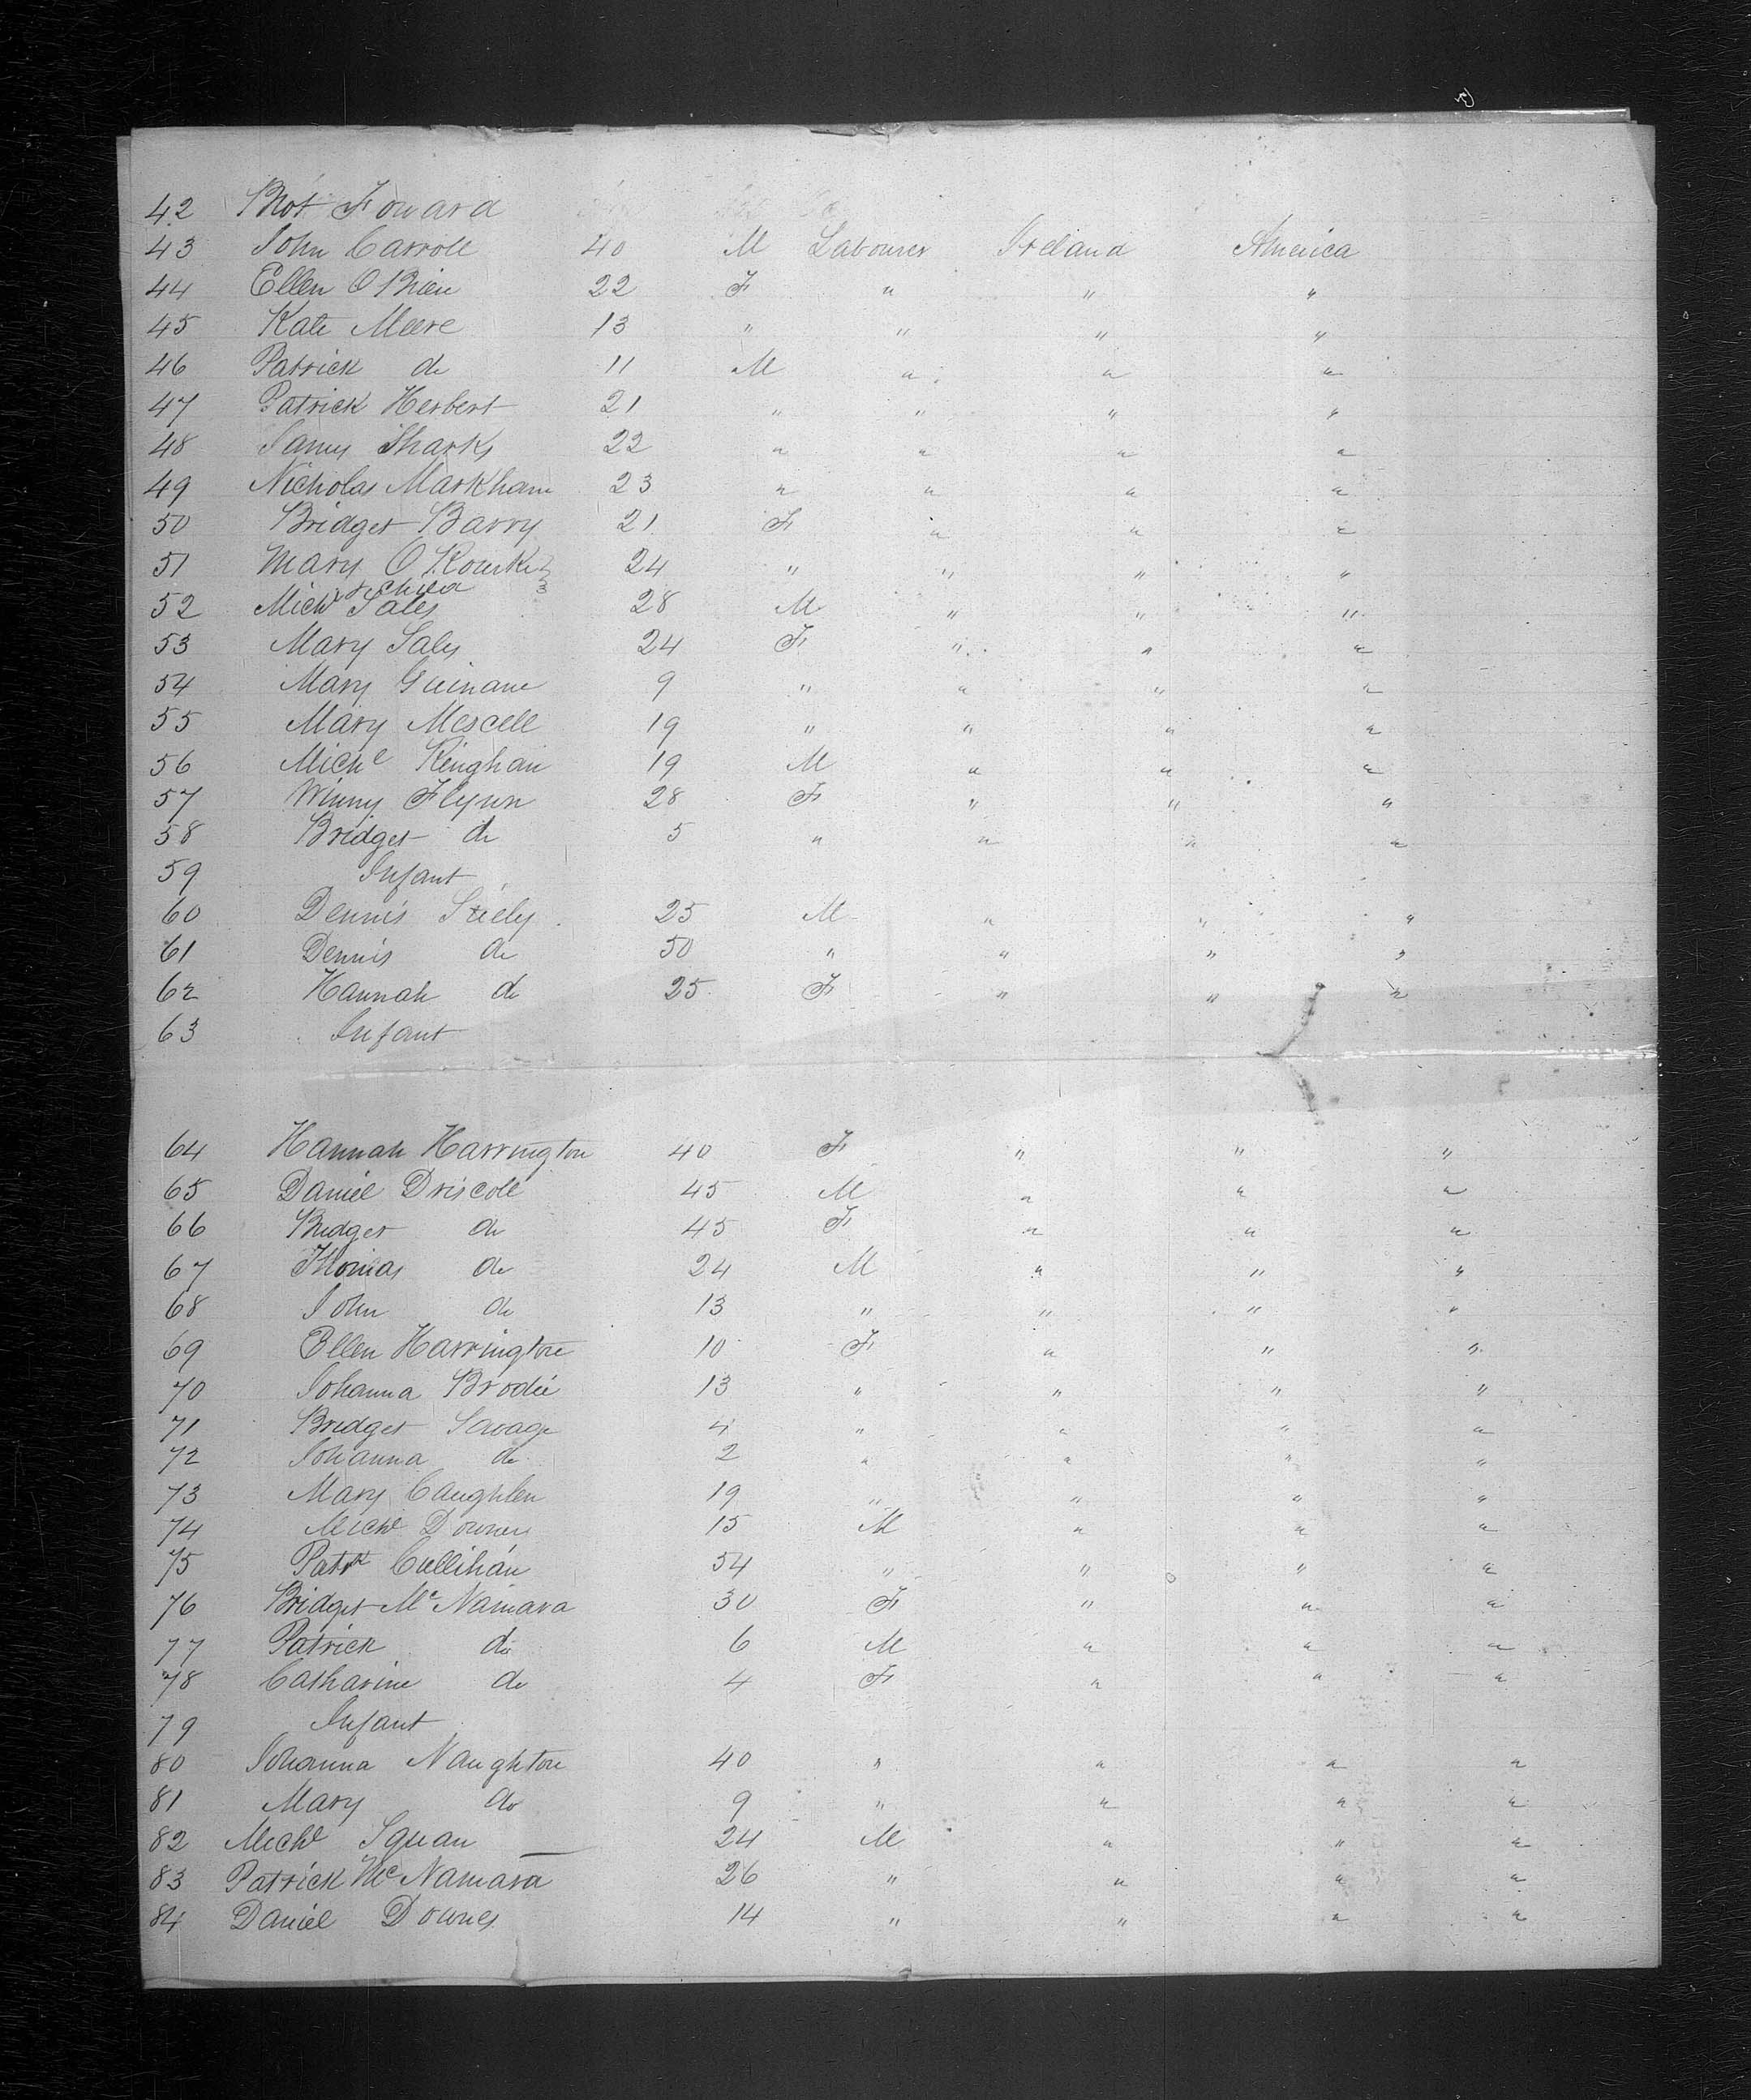 42 Brot Foward
43 John Carroll 40 M Labourer Ireland America
44 Ellen O Brien 22 F " " "
45 Kate Meere 13 " " " "
46 Patrick do 11 M " " "
47 Patrick Herbert 21 " " " "
48 James Sharks 22 " " " "
49 Nicholas Markham 23 " " " "
50 Bridget Barry 21 F " " "
51 Mary O Rourke 24 " " " "
& child
52 Michl Sales 28 M " " "
53 Mary Sales 24 F " " "
54 Mary Guinane 9 " " " "
55 Mary Mescell 19 " " " "
56 Michl Kinghan 19 M " " "
57 Winny Flynn 28 F " " "
58 Bridget do 5 " " " "
59 Infant
60 Dennis 25 M " " "
61 Dennis do 50 " " " "
62 Hannah do 25 F " " "
63 Infant
64 Hannah Harrington 40 F " " "
65 Daniel Driscoll 45 M " " "
66 Bridget do 45 F " " "
67 Thomas do 24 M " " "
68 John do 13 " " " "
69 Ellen Harrington 10 F " " "
70 Johanna Brodie 13 " " " "
71 Bridget Savage 4 " " " "
72 Johanna do 2 " " " "
73 Mary Caughlen 19 " " " "
74 Michl Downes 15 M " " "
75 Patrk Cullihan 54 " " " "
76 Bridget Mc Namara 30 F " " "
77 Patrick do 6 M " " "
78 Catharine do 4 F " " "
79 Infant
80 Johanna Naughton 40 " " " "
81 Mary do 9 " " " "
82 Michl Squan 24 M " " "
83 Patrick Mc Namara 26 " " " "
84 Daniel Downes 14 " " " "